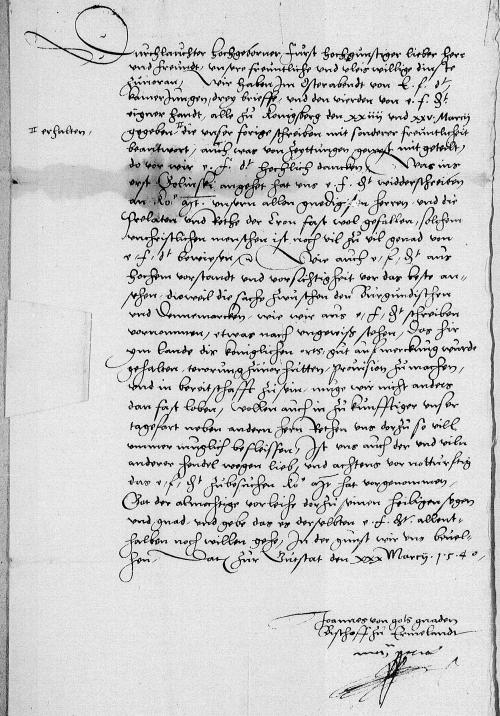 Durchlauchter hochgeborner Furst hochgunstiger lieber herr
und freundt, unsere freuntliche und vleis willige dinste
zuuoran, Wir haben Im Osterabendt von E. f. dt
kamer Jungen, drey brieffe, und den vierden von e. f. dt
eigner handt, alle zu Konigsberg den xxiiii und xxv Marcij
gegeben die unser forige schreiben mit sonderer freuntlicheit
II erhalten,
beantwort, auch was von zeyttungen gewest mit geteilt,
do vor wir e. f. dt hochlich dancken, Was ins
erst angehet hat uns e. f. dt widderschreiben
an Ko mt. unsern allen gnedigsten herren, und die
Prelaten und Rethe der Cron fast wol gefallen, solchem
unchristlichen menschen ist noch vil zu vil gnad von
e. f. dt bewiesen, Wie auch e. f. dt aus
hochem vorstandt und vorsichtigheit vor das beste an-
sehen, dieweil die sache zwuschen den Burgundischen
und Dennemarcken, wie wir aus e. f. dt schreiben
vornommen, etwas noch ungewiss stehen, Das hir
ym lande dis koniglichen orts, gut aufmerckung wurde
gehalten, provision zumachen,
und in bereitschafft zusein, muge wir nicht anders
dan fast loben, wollen auch in zukunfftiger unser
tagefart neben andern hern Rethen uns dorzu so vill
ummer muglich befleissen, Ist uns auch der und viln
anderer hendel wegen lieb, und achtens vor notturftig
das e. f. dt zubesuchen Ko mt hat vorgenommen,
Got der almechtige vorleihe dorzu seinen heiligen segen
und gnad, und gebe das es derselbten e. f. dt. allent-
halben noch willen gehe, In der gunst wir uns bevel-
hen, Dat zur den xxx Marcij. 1540.
Joannes von gots gnaden
Bischoff zu Ermelandt